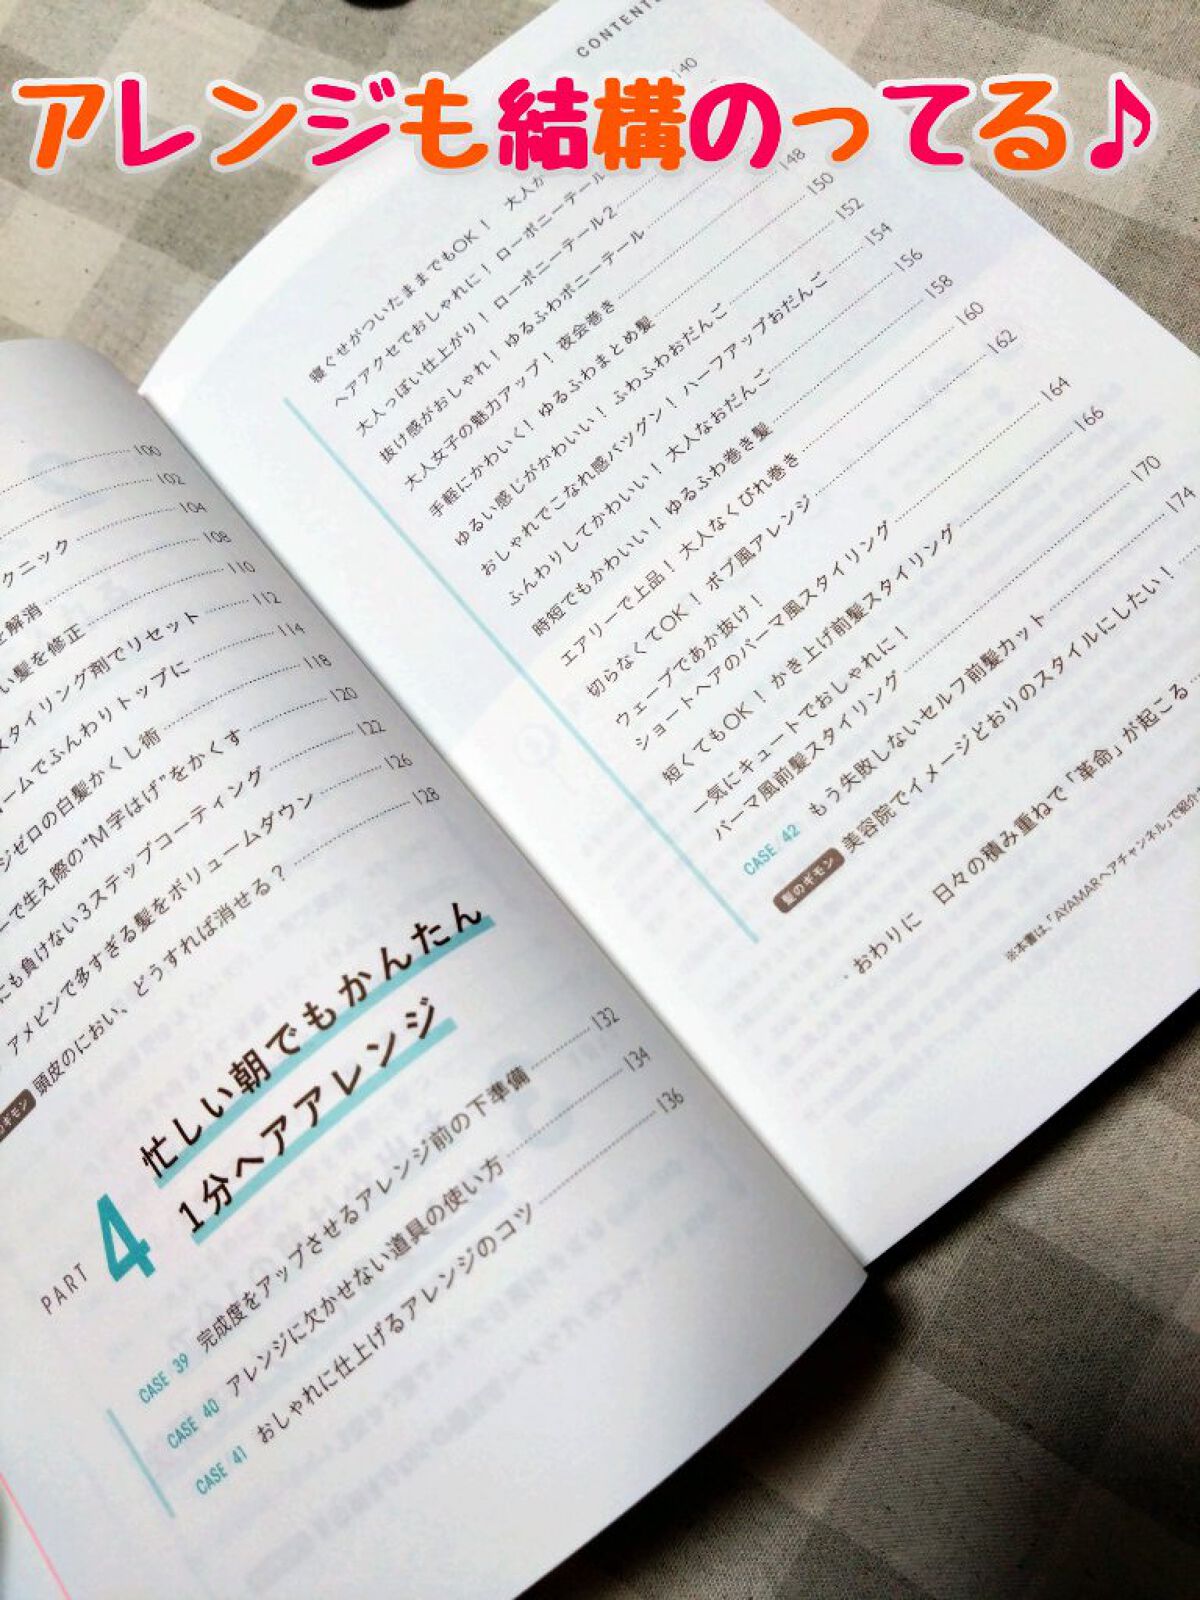 アレンジも結構のってる♪
100
102
クニック
104
を解消
108
い髪を修正
110
スタイリング剤でリセット
112
ームでふんわりトップに
114
ジゼロの白髪かくし術
118
ーで生え際の“M字はげ”をかくす
120
にも負けない3ステップコーティング
122
アメピンで多すぎる髪をボリュームダウン
126
頭皮のにおい、どうすれば消せる？
128
PART 4
忙しい朝でもかんたん
1分ヘアアレンジ
CASE 39 完成度をアップさせるアレンジ前の下準備 132
CASE 40 アレンジに欠かせない道具の使い方 134
CASE 41 おしゃれに仕上げるアレンジのコツ 136
CONTENTS
140
寝ぐせがついたままでもOK！ 大人か
ヘアアクセでおしゃれに！ ローポニーテール
大人っぽい仕上がり！ ローポニーテール2
抜け感がおしゃれ！ ゆるふわポニーテール 148
大人女子の魅力アップ！ 夜会巻き 150
手軽にかわいく！ ゆるふわまとめ髪 152
ゆるい感じがかわいい！ ふわふわおだんご 154
おしゃれでこなれ感バツグン！ ハーフアップおだんご 156
ふんわりしてかわいい！ 大人なおだんご 158
時短でもかわいい！ ゆるふわ巻き髪 160
エアリーで上品！ 大人なくびれ巻き 162
切らなくてOK！ ボブ風アレンジ 164
ウェーブであか抜け！
ショートヘアのパーマ風スタイリング 166
短くてもOK！ かき上げ前髪スタイリング
一気にキュートでおしゃれに！
パーマ風前髪スタイリング
CASE 42 もう失敗しないセルフ前髪カット 170
髪のギモン 美容院でイメージどおりのスタイルにしたい！ 174
おわりに 日々の積み重ねで「革命」が起こる
※本書は、「AYAMARヘアチャンネル」で紹介